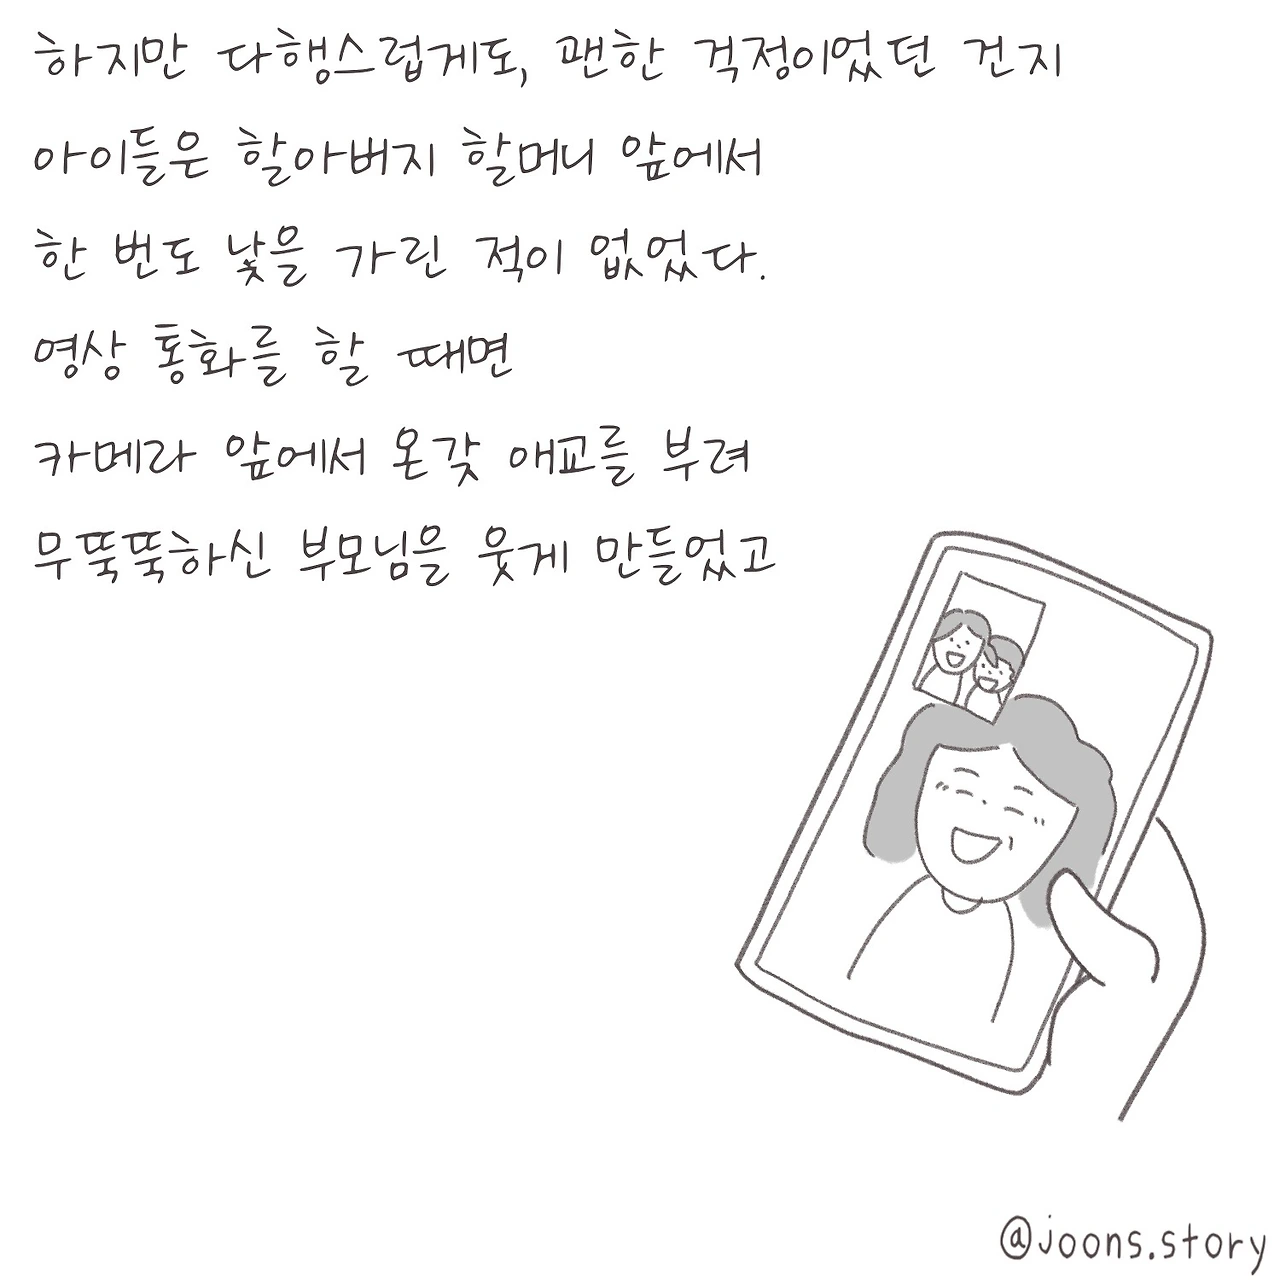 하지만 다행스럽게도, 괜한 걱정이었던 건지
아이들은 할아버지 할머니 앞에서
한 번도 낯을 가린 적이 없었다.
영상 통화를 할 때면
카메라 앞에서 온갖 애교를 부려
무뚝뚝하신 부모님을 웃게 만들었고
@joons.story